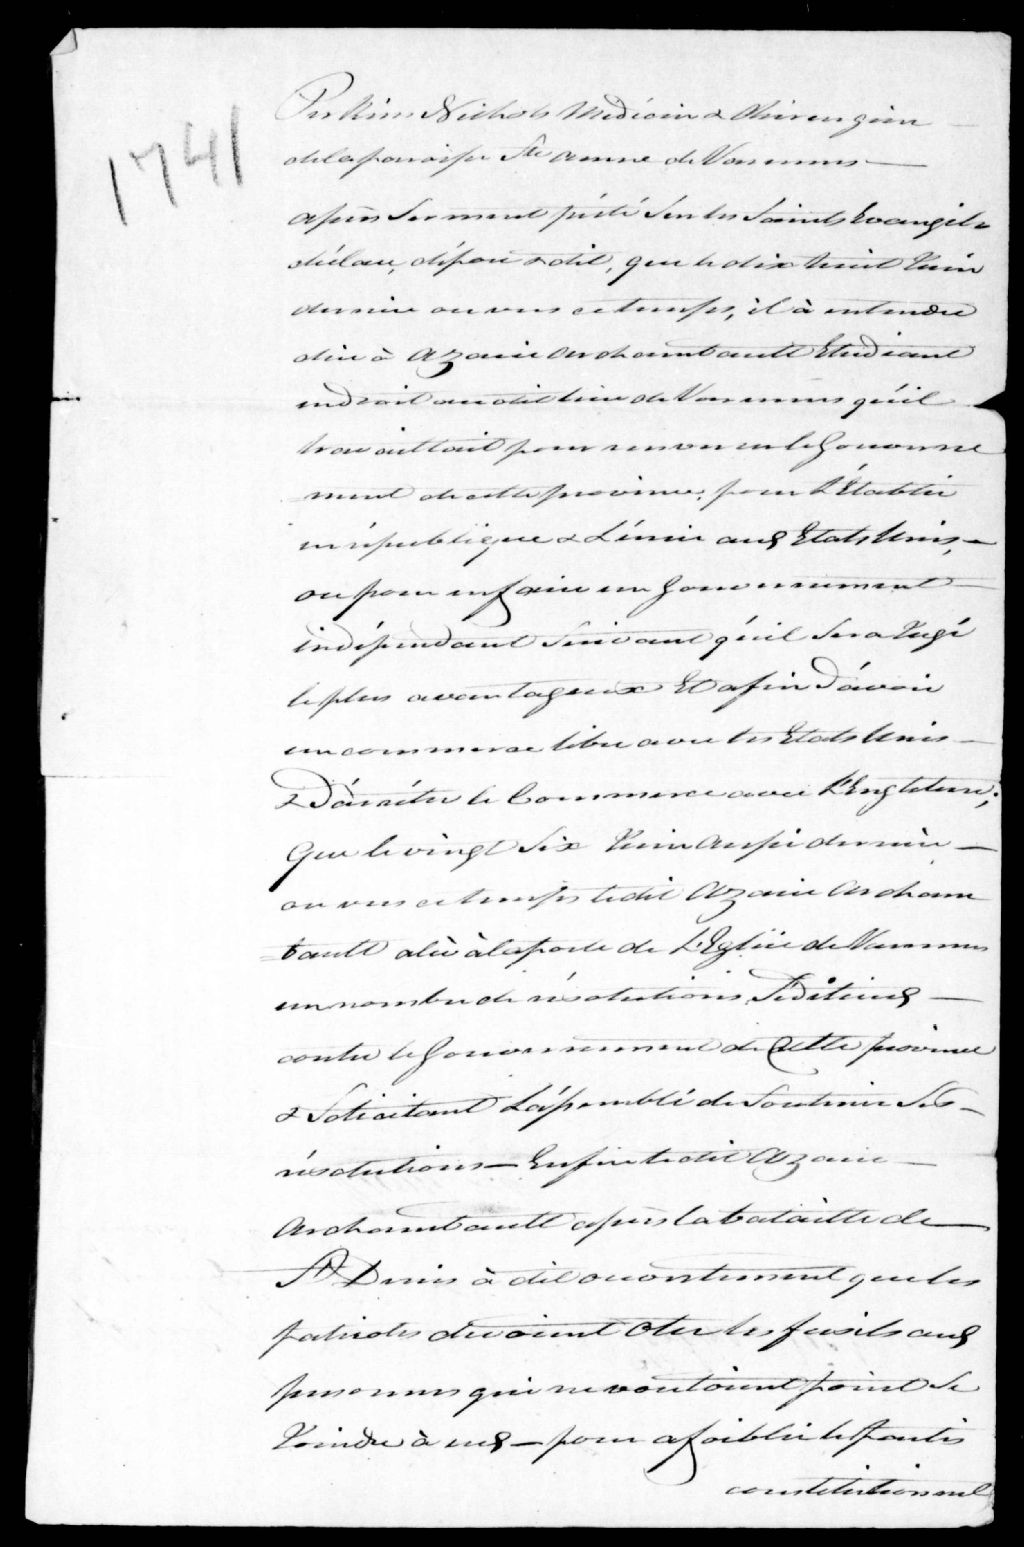 1741
Perkins Nichols Médécin & Chirengien
de la paroisse Ste anne de Varennes
après Serment prêté Sur les Saints Evangiles
déclare, dépose & dit, que le dix huit Juin
dernier ou vers ce temps, il à entendre
dire à Azarie Archambault Etudiant
en droit au dit lieu de Varennes qu'il
travaillait pour renverser le Gouverne
ment de cette province, pour L'Etablir
en république & L'unir aux Etats Unis,
ou pour en faire un Gouvernement
indépendant Suivant qu'il Sera Jugé
le plus avantageux Et afin D'avoir
un commerce libre avec les Etats Unis
& D'arrêter le Commerce avec L'Engleterre;
Que le vingt Six Juin aussi dernier
ou vers ce temps le dit Azarie Archam
=bault a lu à la porte de L'Eglise de Varennes
un nombre de résolutions Séditieux
contre le Gouvernement de Cette province
& Solicitant L'assemblé de Soutenir Ses
résolutions — Enfin le dit Azarie
Archambault après la bataille de
St Denis à dit ouvertement que les
patriotes devoient Oter les fusils aux
personnes qui ne vouloient point Se
Joindre à eux — pour afoiblir le partis
constitutionnel